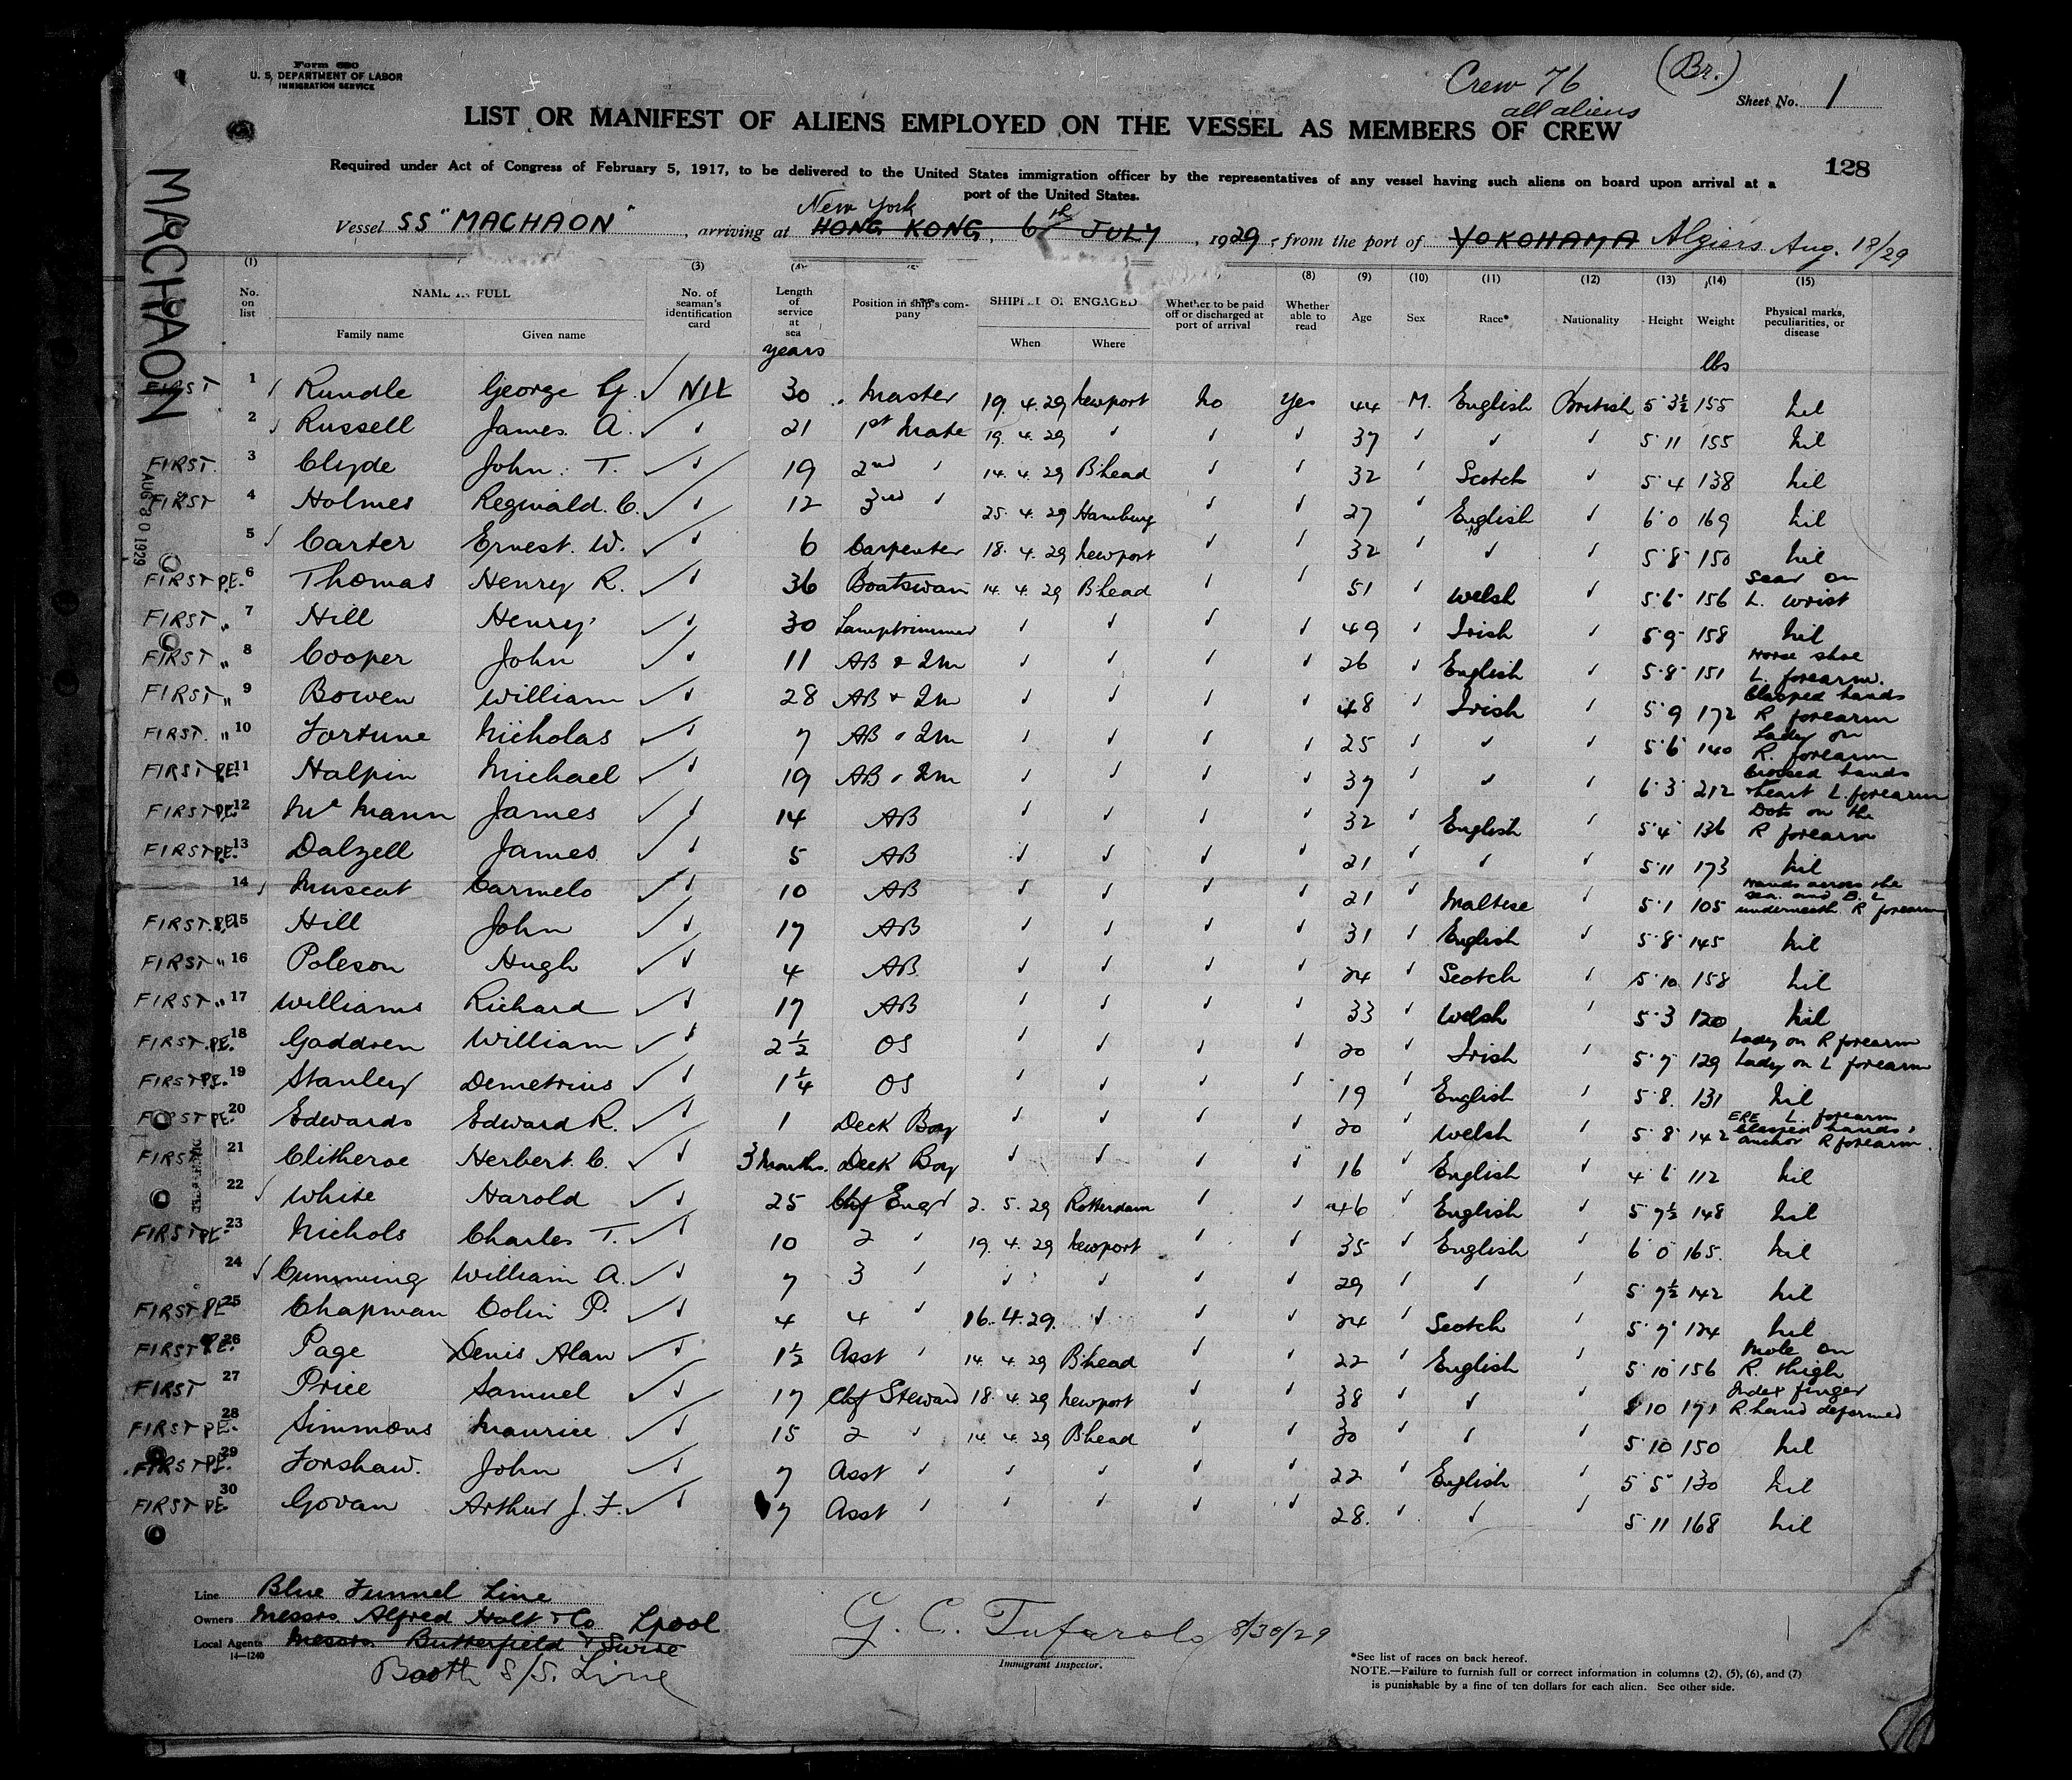 Form 680
U. S. DEPARTMENT OF LABOR
IMMIGRATION SERVICE
Crew 76 (Br.)
all aliens
Sheet No. 1
LIST OR MANIFEST OF ALIENS EMPLOYED ON THE VESSEL AS MEMBERS OF CREW
128
Required under Act of Congress of February 5, 1917, to be delivered to the United States immigration officer by the representatives of any vessel having such aliens on board upon arrival at a
port of the United States.
New York
Vessel SS "MACHAON", arriving at HONG KONG, 6th JULY, 1929, from the port of YOKOHAMA Algiers Aug. 18/29
MACHAON
AUG 30 1929
(1) (3) (8) (9) (10) (11) (12) (13) (14) (15)
No. on list NAME IN FULL Family name Given name No. of seaman's identification card Length of service at sea years Position in ship's company SHIPPED OR ENGAGED When Where Whether to be paid off or discharged at port of arrival Whether able to read Age Sex Race* Nationality Height Weight lbs Physical marks, peculiarities, or disease
FIRST 1 Rundle George G. ✓ NIL 30 Master 19.4.29 Newport No Yes 44 M. English British 5 3½ 155 Nil
2 Russell James A. ✓ ✓ 21 1st Mate 19.4.29 ✓ ✓ ✓ 37 ✓ ✓ ✓ 5 11 155 Nil
FIRST. 3 Clyde John T. ✓ ✓ 19 2nd " 14.4.29 B'head ✓ ✓ 32 ✓ Scotch ✓ 5 4 138 Nil
FIRST 4 Holmes Reginald C. ✓ ✓ 12 3rd " 25.4.29 Hamburg ✓ ✓ 27 ✓ English ✓ 6 0 169 Nil
5 Carter Ernest W. ✓ ✓ 6 Carpenter 18.4.29 Newport ✓ ✓ 32 ✓ ✓ ✓ 5 8 150 Nil
FIRST PE. 6 Thomas Henry R. ✓ ✓ 36 Boatswain 14.4.29 B'head ✓ ✓ 51 ✓ Welsh ✓ 5 6 156 Scar on L. wrist
FIRST " 7 Hill Henry ✓ ✓ 30 Lamptrimmer ✓ ✓ ✓ ✓ 49 ✓ Irish ✓ 5 9 158 Nil
FIRST " 8 Cooper John ✓ ✓ 11 AB & QM ✓ ✓ ✓ ✓ 26 ✓ English ✓ 5 8 151 Horse shoe L. forearm.
FIRST " 9 Bowen William ✓ ✓ 28 AB & QM ✓ ✓ ✓ ✓ 48 ✓ Irish ✓ 5 9 172 Clasped hands R forearm
FIRST. " 10 Fortune Nicholas ✓ ✓ 7 AB & QM ✓ ✓ ✓ ✓ 25 ✓ ✓ ✓ 5 6 140 Lady on R. forearm
FIRST PE 11 Halpin Michael ✓ ✓ 19 AB & QM ✓ ✓ ✓ ✓ 37 ✓ ✓ ✓ 6 3 212 Crossed hands heart L. forearm
FIRST PE. 12 McMann James ✓ ✓ 14 AB ✓ ✓ ✓ ✓ 32 ✓ English ✓ 5 4 136 Dots on the R forearm
FIRST PE. 13 Dalzell James ✓ ✓ 5 AB ✓ ✓ ✓ ✓ 21 ✓ ✓ ✓ 5 11 173 Nil
14 Muscat Carmelo ✓ ✓ 10 AB ✓ ✓ ✓ ✓ 21 ✓ Maltese ✓ 5 1 105 Hands across the sea. and B. L underneath R forearm
FIRST PE. 15 Hill John ✓ ✓ 17 AB ✓ ✓ ✓ ✓ 31 ✓ English ✓ 5 8 145 Nil
FIRST " 16 Poleson Hugh ✓ ✓ 4 AB ✓ ✓ ✓ ✓ 24 ✓ Scotch ✓ 5 10 158 Nil
FIRST " 17 Williams Richard ✓ ✓ 17 AB ✓ ✓ ✓ ✓ 33 ✓ Welsh ✓ 5 3 120 Nil
FIRST PE. 18 Gaddren William ✓ ✓ 2½ OS ✓ ✓ ✓ ✓ 20 ✓ Irish ✓ 5 7 129 Lady on R forearm Lady on L forearm
FIRST PE. 19 Stanley Demetrius ✓ ✓ 1¼ OS ✓ ✓ ✓ ✓ 19 ✓ English ✓ 5 8 131 Nil
FIRST PE. 20 Edwards Edward R. ✓ ✓ 1 Deck Boy ✓ ✓ ✓ ✓ 20 ✓ Welsh ✓ 5 8 142 ERE L. forearm Clasped hands, anchor R forearm.
FIRST 21 Clitheroe Herbert C. ✓ ✓ 3 Months. Deck Boy ✓ ✓ ✓ ✓ 16 ✓ English ✓ 4 6 112 Nil
22 White Harold ✓ ✓ 25 Chf Engr 2.5.29 Rotterdam ✓ ✓ 46 ✓ English ✓ 5 7½ 148 Nil
FIRST PE. 23 Nichols Charles T. ✓ ✓ 10 2 " 19.4.29 Newport ✓ ✓ 35 ✓ English ✓ 6 0 165. Nil
24 Cumming William A. ✓ ✓ 7 3 " ✓ ✓ ✓ ✓ 29 ✓ ✓ ✓ 5 7½ 142 Nil
FIRST PE 25 Chapman Colin P. ✓ ✓ 4 4 " 16.4.29. ✓ ✓ ✓ 24 ✓ Scotch ✓ 5 7 124 Nil
FIRST PE. 26 Page Denis Alan ✓ ✓ 1½ Asst " 14.4.29 B'head ✓ ✓ 22 ✓ English ✓ 5 10 156 Mole on R. thigh
FIRST 27 Price Samuel ✓ ✓ 17 Chf Steward 18.4.29 Newport ✓ ✓ 38 ✓ ✓ ✓ 5 10 171 Index finger R. hand deformed
FIRST PE. 28 Simmons Maurice ✓ ✓ 15 2 " 14.4.29 B'head ✓ ✓ 30 ✓ ✓ ✓ 5 10 150 Nil
FIRST PE. 29 Forshaw. John ✓ ✓ 7 Asst ✓ ✓ ✓ ✓ ✓ 22 ✓ English ✓ 5 5 130 Nil
FIRST PE 30 Govan Arthur J. F. ✓ ✓ 7 Asst ✓ ✓ ✓ ✓ ✓ 28. ✓ ✓ ✓ 5 11 168 Nil
Line Blue Funnel Line
Owners Messrs Alfred Holt & Co Lpool
Local Agents Messrs Butterfield & Swire
14—1240
Booth S/S. Line
G. C. Tufarolo 8/30/29
Immigrant Inspector.
*See list of races on back hereof.
NOTE.—Failure to furnish full or correct information in columns (2), (5), (6), and (7)
is punishable by a fine of ten dollars for each alien. See other side.